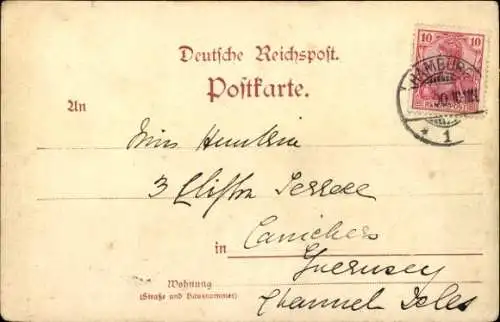 Deutsche Reichspost.
Postkarte.
10 10
HAMBURG
* 1
An
Miss
3 Clifton Terrece
in
Guernsey
Wohnung
(Straße und Hausnummer)
Channel Isles